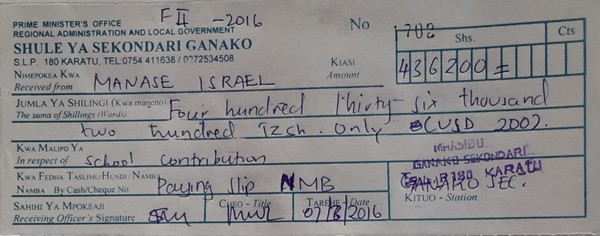 PRIME MINISTER'S OFFICE FII - 2016
REGIONAL ADMINISTRATION AND LOCAL GOVERNMENT No 1702
SHULE YA SEKONDARI GANAKO Shs. Cts
S.L.P. 180 KARATU, TEL:0754 411638 / 0272534508 KIASI
NIMEPOKEA KWA MANASE ISRAEL Amount 436200 =
Received from
JUMLA YA SHILINGI (Kwa maneno) Four hundred thirty six thousand
The suma of Shillings (Words) two hundred Tzsh. only (USD 200).
KWA MALIPO YA
In respect of school contribution
GANAKO SEKONDARI
KWA FEDHA TASLIMU/HUNDI / NAMBA KARATU
NAMBA By Cash/Cheque No. Paying slip NMB GANAKO SEC.
SAHIHI YA MPOKEAJI CHEO - Title TAREHE - Date KITUO - Station
Receiving Officer's Signature 2016